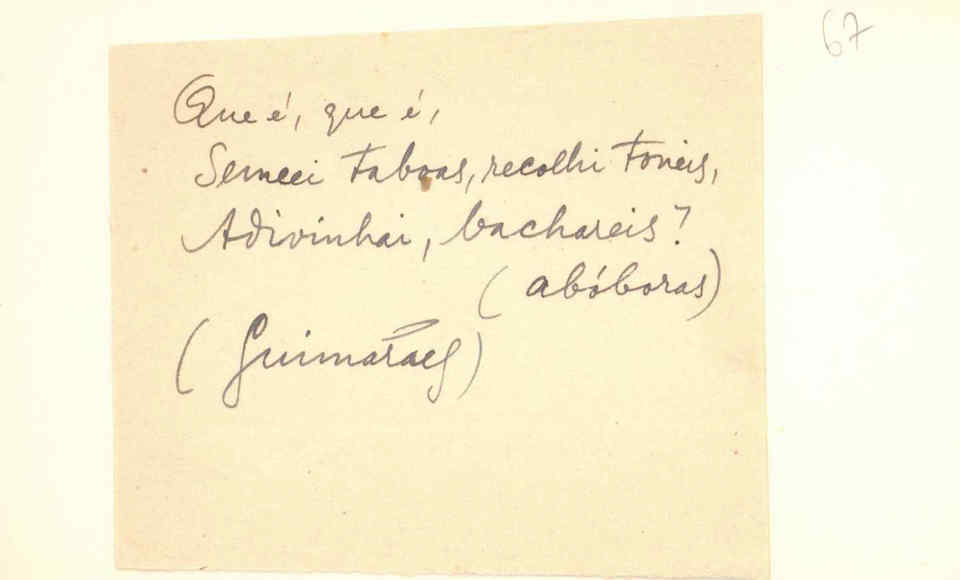 67
Que é, que é,
Semeei taboas, recolhi toneis,
Adivinhai, bachareis?
(abóboras)
(Guimarães)